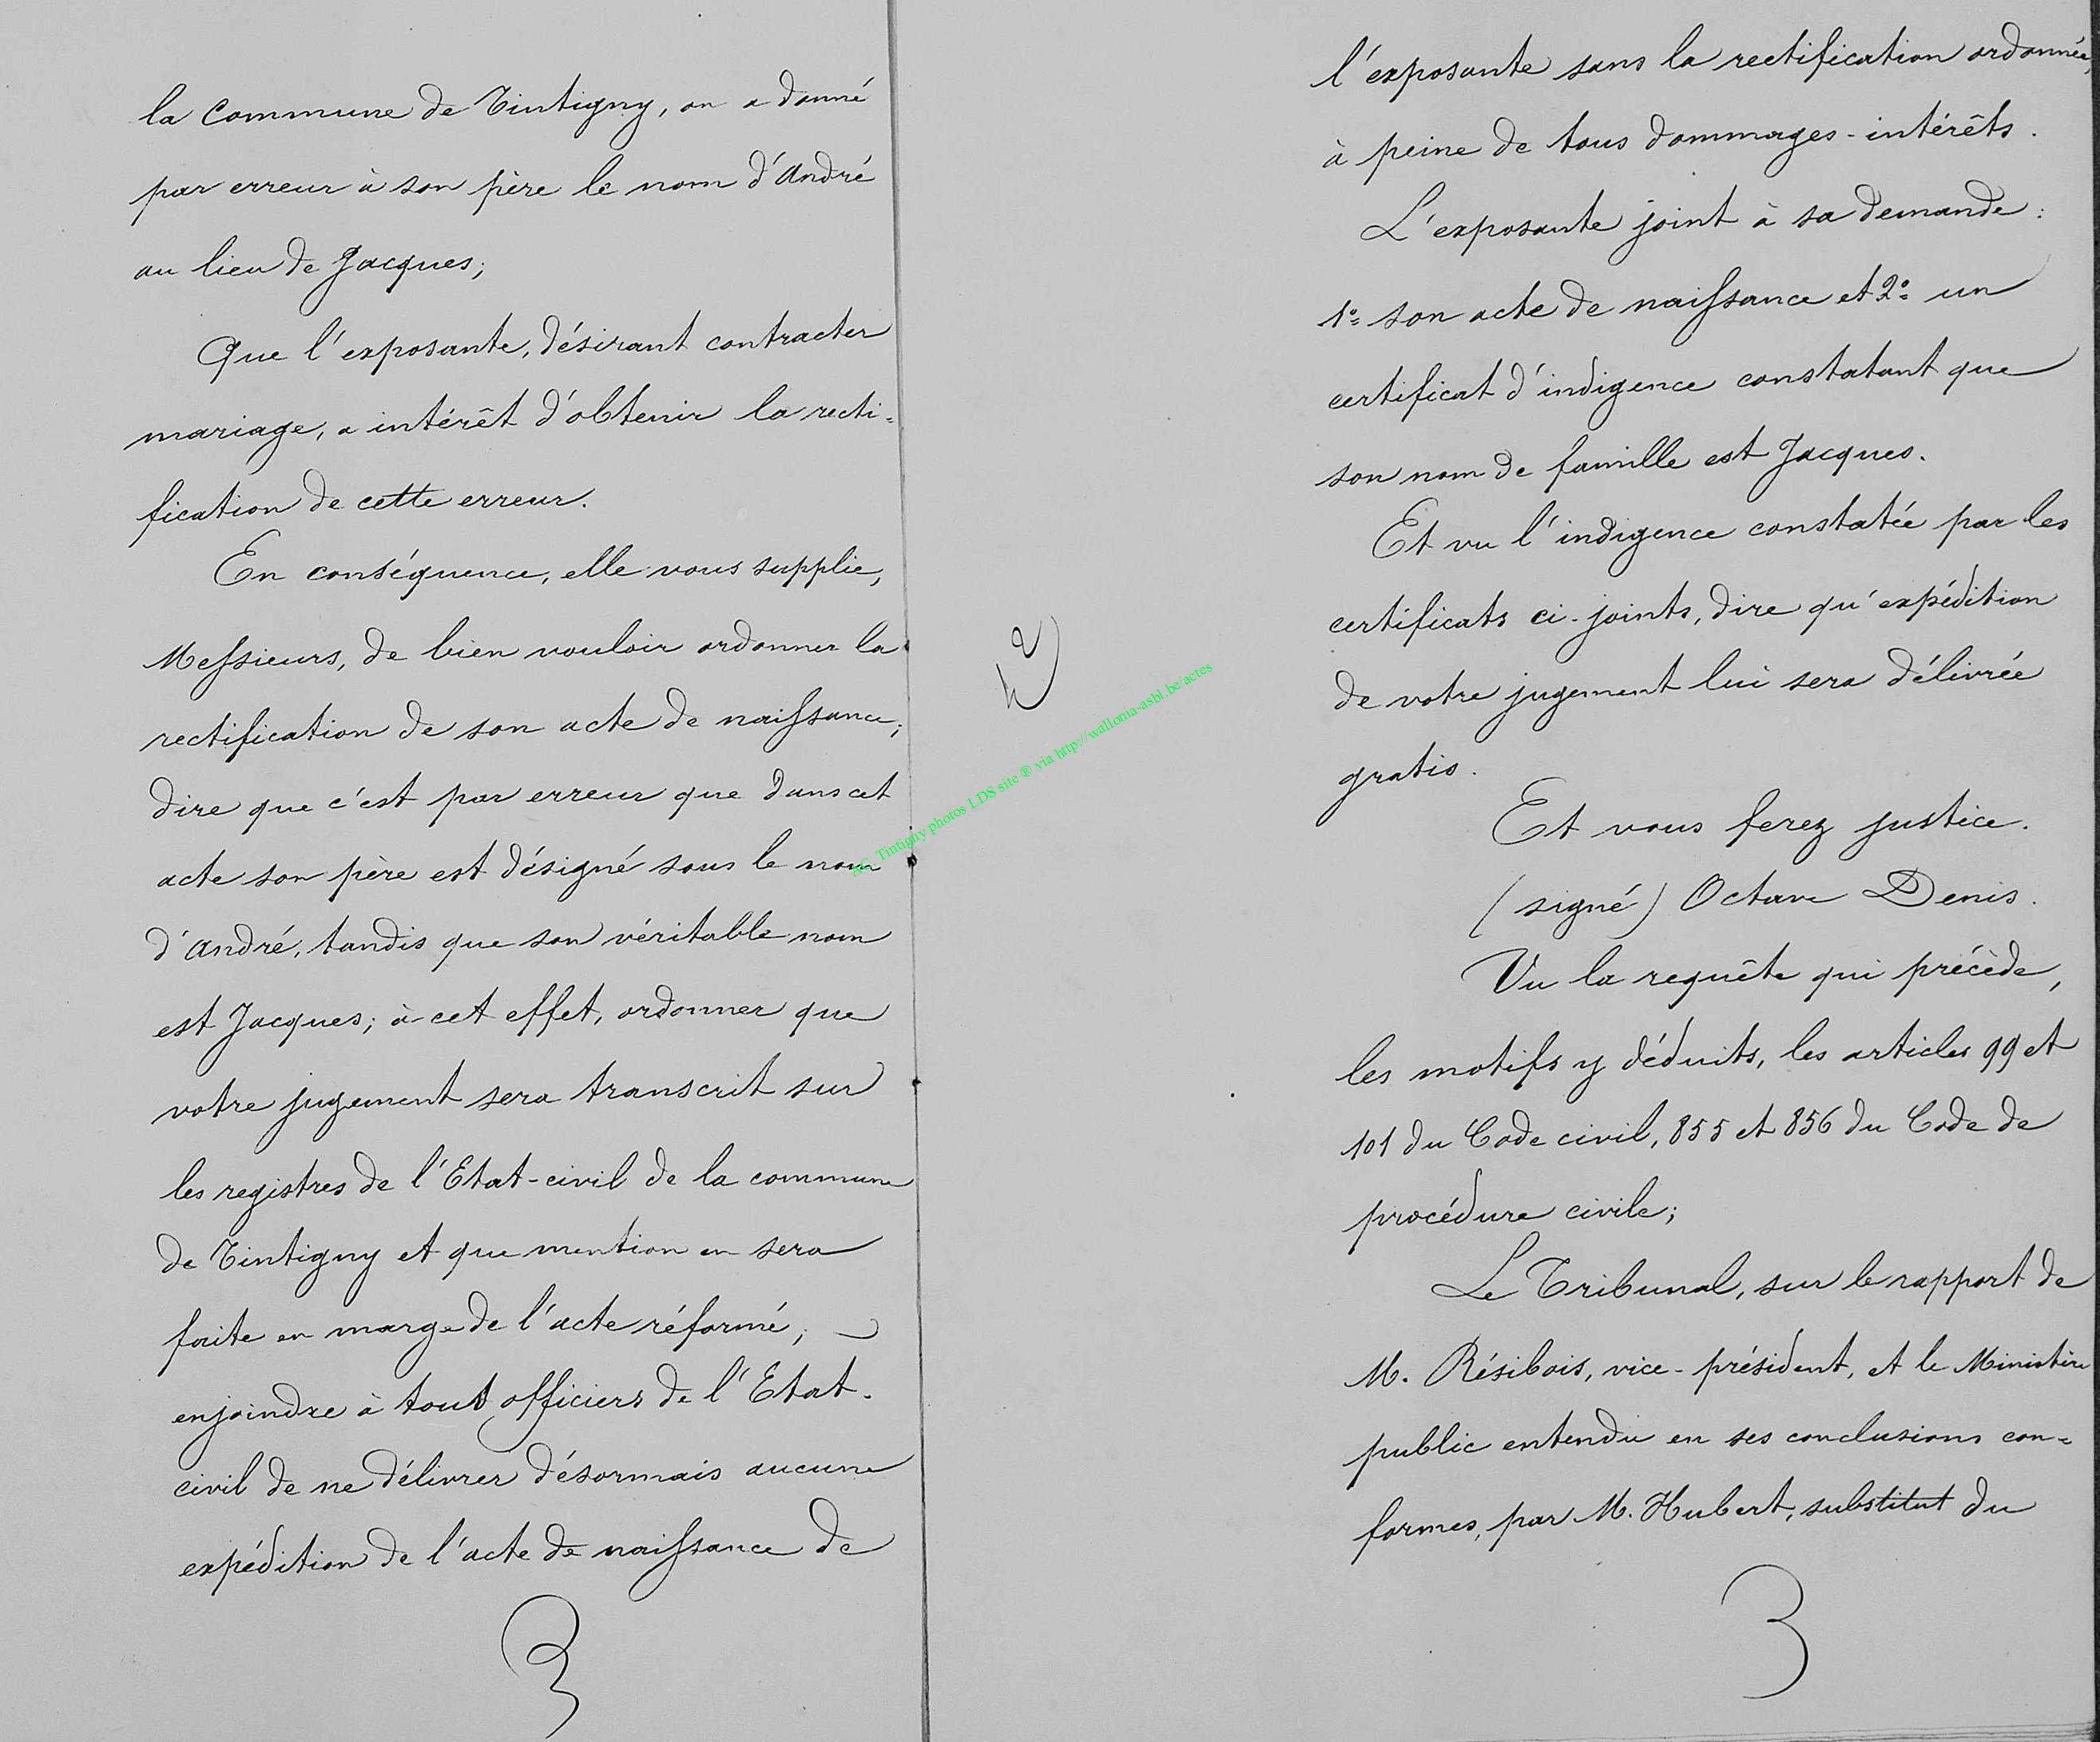 la Commune de Tintigny, on a donné
par erreur à son père le nom d'André
au lieu de Jacques;
Que l'exposante, désirant contracter
mariage, a intérêt d'obtenir la recti=
fication de cette erreur.
En conséquence, elle vous supplie,
Messieurs, de bien vouloir ordonner la
rectification de son acte de naissance;
dire que c'est par erreur que dans cet
acte son père est désigné sous le nom
d'André, tandis que son véritable nom
est Jacques; à cet effet, ordonner que
votre jugement sera transcrit sur
les registres de l'Etat-civil de la commune
de Tintigny et que mention en sera
faite en marge de l'acte réformé;
enjoindre à tout officiers de l'Etat-
civil de ne délivrer désormais aucune
expédition de l'acte de naissance de
A.C. Tintigny photos LDS site ® via http://wallonia-asbl.be/actes
l'exposante sans la rectification ordonnée,
à peine de tous dommages-intérêts.
L'exposante joint à sa demande:
1º son acte de naissance et 2º un
certificat d'indigence constatant que
son nom de famille est Jacques.
Et vu l'indigence constatée par les
certificats ci-joints, dire qu'expédition
de votre jugement lui sera délivrée
gratis.
Et vous ferez justice.
(signé) Octave Denis.
Vu la requête qui précède,
les motifs y déduits, les articles 99 et
101 du Code civil, 855 et 856 du Code de
procédure civile;
Le Tribunal, sur le rapport de
M. Résibois, vice-président, et le Ministère
public entendu en ses conclusions con=
formes, par M. Hubert, substitut du